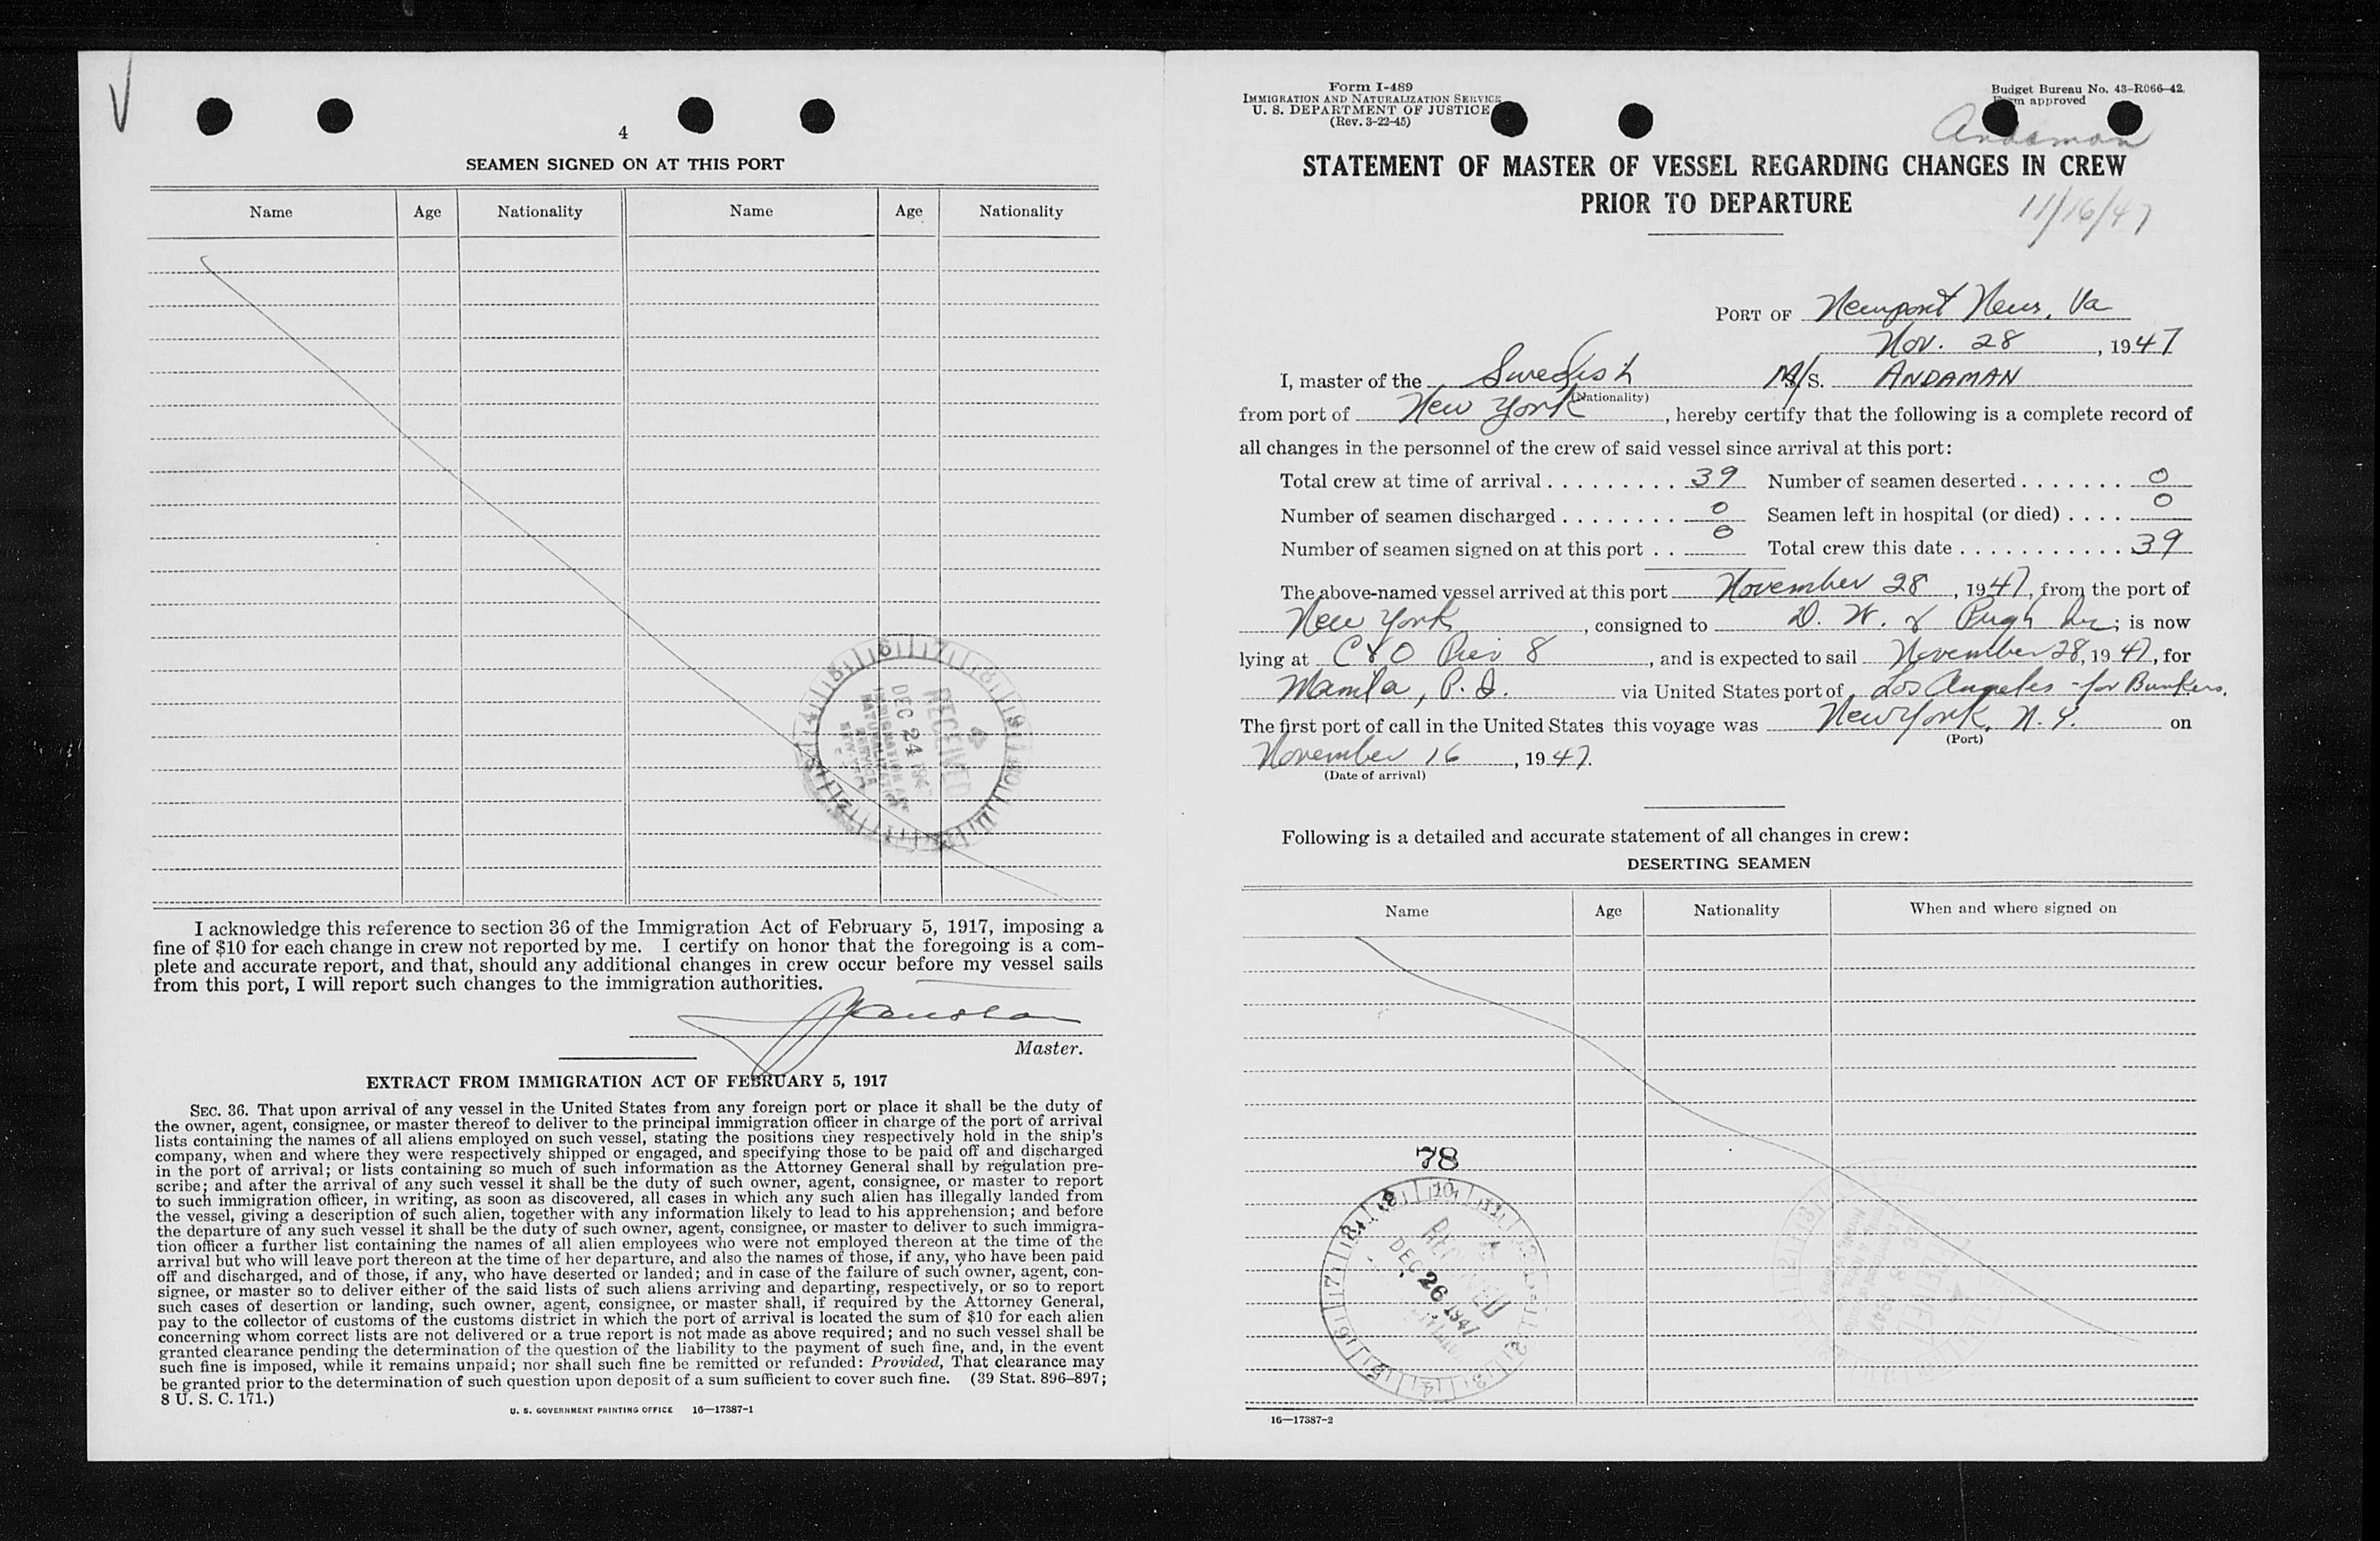 4
SEAMEN SIGNED ON AT THIS PORT
Name Age Nationality Name Age Nationality
RECEIVED
DEC 24 194
I acknowledge this reference to section 36 of the Immigration Act of February 5, 1917, imposing a
fine of $10 for each change in crew not reported by me. I certify on honor that the foregoing is a com-
plete and accurate report, and that, should any additional changes in crew occur before my vessel sails
from this port, I will report such changes to the immigration authorities.
Master.
EXTRACT FROM IMMIGRATION ACT OF FEBRUARY 5, 1917
SEC. 36. That upon arrival of any vessel in the United States from any foreign port or place it shall be the duty of
the owner, agent, consignee, or master thereof to deliver to the principal immigration officer in charge of the port of arrival
lists containing the names of all aliens employed on such vessel, stating the positions they respectively hold in the ship's
company, when and where they were respectively shipped or engaged, and specifying those to be paid off and discharged
in the port of arrival; or lists containing so much of such information as the Attorney General shall by regulation pre-
scribe; and after the arrival of any such vessel it shall be the duty of such owner, agent, consignee, or master to report
to such immigration officer, in writing, as soon as discovered, all cases in which any such alien has illegally landed from
the vessel, giving a description of such alien, together with any information likely to lead to his apprehension; and before
the departure of any such vessel it shall be the duty of such owner, agent, consignee, or master to deliver to such immigra-
tion officer a further list containing the names of all alien employees who were not employed thereon at the time of the
arrival but who will leave port thereon at the time of her departure, and also the names of those, if any, who have been paid
off and discharged, and of those, if any, who have deserted or landed; and in case of the failure of such owner, agent, con-
signee, or master so to deliver either of the said lists of such aliens arriving and departing, respectively, or so to report
such cases of desertion or landing, such owner, agent, consignee, or master shall, if required by the Attorney General,
pay to the collector of customs of the customs district in which the port of arrival is located the sum of $10 for each alien
concerning whom correct lists are not delivered or a true report is not made as above required; and no such vessel shall be
granted clearance pending the determination of the question of the liability to the payment of such fine, and, in the event
such fine is imposed, while it remains unpaid; nor shall such fine be remitted or refunded: Provided, That clearance may
be granted prior to the determination of such question upon deposit of a sum sufficient to cover such fine. (39 Stat. 896–897;
8 U. S. C. 171.)
U. S. GOVERNMENT PRINTING OFFICE 16—17387-1
Form I-489
IMMIGRATION AND NATURALIZATION SERVICE
U. S. DEPARTMENT OF JUSTICE
(Rev. 3-22-45)
Budget Bureau No. 43-R066-42.
Form approved
Andaman
STATEMENT OF MASTER OF VESSEL REGARDING CHANGES IN CREW
PRIOR TO DEPARTURE
11/16/47
PORT OF Newport News, Va
Nov. 28, 1947
I, master of the Swedish M/S. ANDAMAN
(Nationality)
from port of New York, hereby certify that the following is a complete record of
all changes in the personnel of the crew of said vessel since arrival at this port:
Total crew at time of arrival . . . . . . . . . 39 Number of seamen deserted . . . . . . . 0
Number of seamen discharged . . . . . . . . 0 Seamen left in hospital (or died) . . . . 0
Number of seamen signed on at this port . . 0 Total crew this date . . . . . . . . . . . 39
The above-named vessel arrived at this port November 28, 1947, from the port of
New York, consigned to D. W. & Pugh Inc; is now
lying at C & O Pier 8, and is expected to sail November 28, 1947, for
Manila, P. I. via United States port of Los Angeles - for Bunkers.
The first port of call in the United States this voyage was New York, N. Y. on
(Port)
November 16, 1947.
(Date of arrival)
Following is a detailed and accurate statement of all changes in crew:
DESERTING SEAMEN
Name Age Nationality When and where signed on
78
RECEIVED
DEC 26 1947
16—17387-2